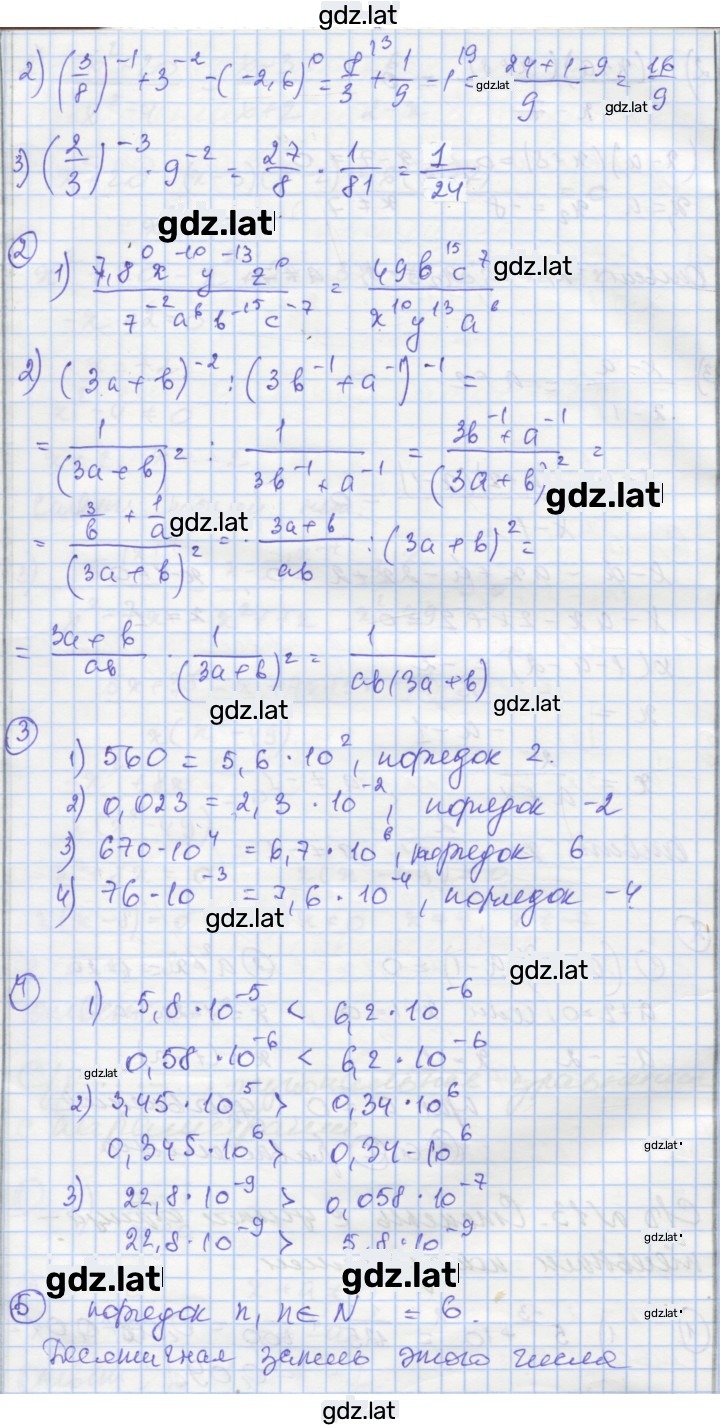 gdz.lat
2) (3/8)^-1 + 3^-2 - (-2,6)^0 = 8/3 ^3 + 1/9 - 1^9 = (24+1-9)/9 = 16/9
gdz.lat
gdz.lat
3) (2/3)^-3 · 9^-2 = 27/8 · 1/81 = 1/24
gdz.lat
② 1) (7,8^0 x^-10 y^-13 z^0)/(7^-2 a^6 b^-15 c^-7) = (49b^15 c^7)/(x^10 y^13 a^6)
gdz.lat
2) (3a+b)^-2 : (3b^-1 + a^-1)^-1 =
= 1/(3a+b)^2 : 1/(3b^-1 + a^-1) = (3b^-1 + a^-1)/(3a+b)^2 =
gdz.lat
= (3/b + 1/a)/(3a+b)^2 = (3a+b)/ab : (3a+b)^2 =
gdz.lat
= (3a+b)/ab · 1/(3a+b)^2 = 1/(ab(3a+b))
gdz.lat
gdz.lat
③ 1) 560 = 5,6 · 10^2, порядок 2.
2) 0,023 = 2,3 · 10^-2, порядок -2
3) 670 · 10^4 = 6,7 · 10^6, порядок 6
4) 76 · 10^-3 = 7,6 · 10^-4, порядок -4
gdz.lat
gdz.lat
④ 1) 5,8 · 10^-5 < 6,2 · 10^-6
0,58 · 10^-6 < 6,2 · 10^-6
gdz.lat
2) 3,45 · 10^5 > 0,34 · 10^6
0,345 · 10^6 > 0,34 · 10^6
gdz.lat
3) 22,8 · 10^-9 > 0,058 · 10^-7
gdz.lat
22,8 · 10^-9 > 5,8 · 10^-9
gdz.lat
gdz.lat
gdz.lat
⑤ порядок n, n∈N = 6.
gdz.lat
Десятичная запись этого числа
gdz.lat